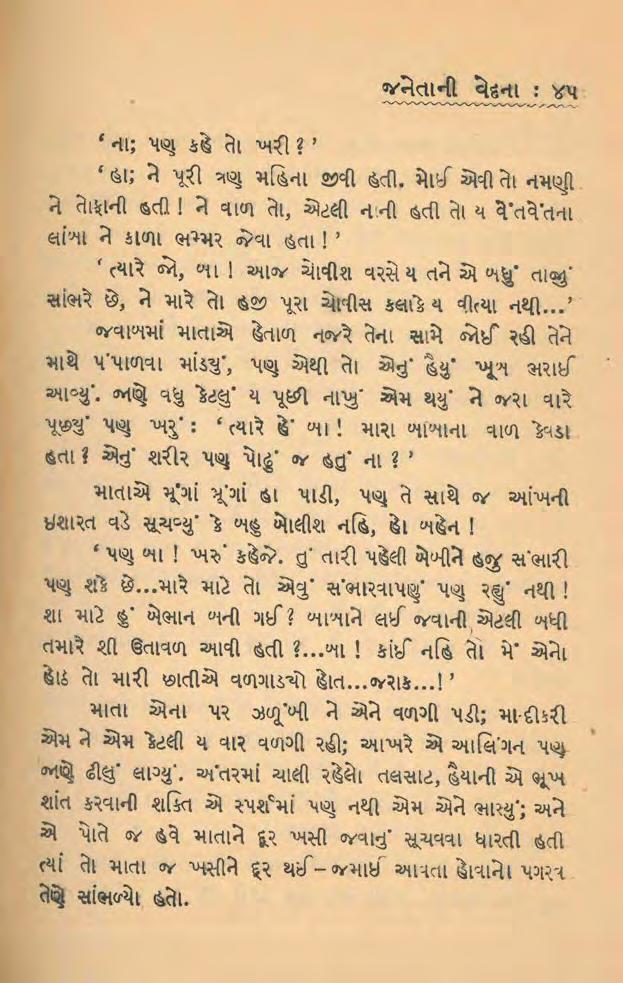 જનેતાની વેદના : ૪૫
‘ ના; પણ કહે તો ખરી ? ’
‘ હા; ને પૂરી ત્રણ મહિના જીવી હતી. મોઈ એવી તો નમણી
ને તોફાની હતી ! ને વાળ તો, એટલી નાની હતી તો ય વેંતવેંતના
લાંબા ને કાળા ભમ્મર જેવા હતા ! ’
‘ ત્યારે જો, બા ! આજ ચોવીશ વરસે ય તને એ બધું તાજું
સાંભરે છે, ને મારે તો હજી પૂરા ચોવીસ કલાકે ય વીત્યા નથી...’
જવાબમાં માતાએ હેતાળ નજરે તેના સામે જોઈ રહી તેને
માથે પંપાળવા માંડયું, પણ એથી તો એનું હૈયું ખૂબ ભરાઈ
આવ્યું. જાણે વધુ કેટલું ય પૂછી નાખું એમ થયું ને જરા વારે
પૂછયું પણ ખરું : ‘ ત્યારે હેં બા ! મારા બાબાના વાળ કેવડા
હતા ? એનું શરીર પણ પોઢું જ હતું ના ? ’
માતાએ મૂંગાં મૂંગાં હા પાડી, પણ તે સાથે જ આંખની
ઇશારત વડે સૂચવ્યું કે બહુ બોલીશ નહિ, હો બહેન !
‘ પણ બા ! ખરું કહેજે. તું તારી પહેલી બેબીને હજુ સંભારી
પણ શકે છે...મારે માટે તો એવું સંભારવાપણું પણ રહ્યું નથી !
શા માટે હું બેભાન બની ગઈ ? બાબાને લઈ જવાની એટલી બધી
તમારે શી ઉતાવળ આવી હતી ?...બા ! કાંઈ નહિ તો મેં એનો
હોઠ તો મારી છાતીએ વળગાડયો હોત...જરાક...! ’
માતા એના પર ઝળૂંબી ને એને વળગી પડી; મા-દીકરી
એમ ને એમ કેટલી ય વાર વળગી રહી; આખરે એ આલિંગન પણ
જાણે ઢીલું લાગ્યું. અંતરમાં ચાલી રહેલો તલસાટ, હૈયાની એ ભૂખ
શાંત કરવાની શક્તિ એ સ્પર્શમાં પણ નથી એમ એને ભાસ્યું; અને
એ પોતે જ હવે માતાને દૂર ખસી જવાનું સૂચવવા ધારતી હતી
ત્યાં તો માતા જ ખસીને દૂર થઈ – જમાઈ આવતા હોવાનો પગરવ
તેણે સાંભળ્યો હતો.